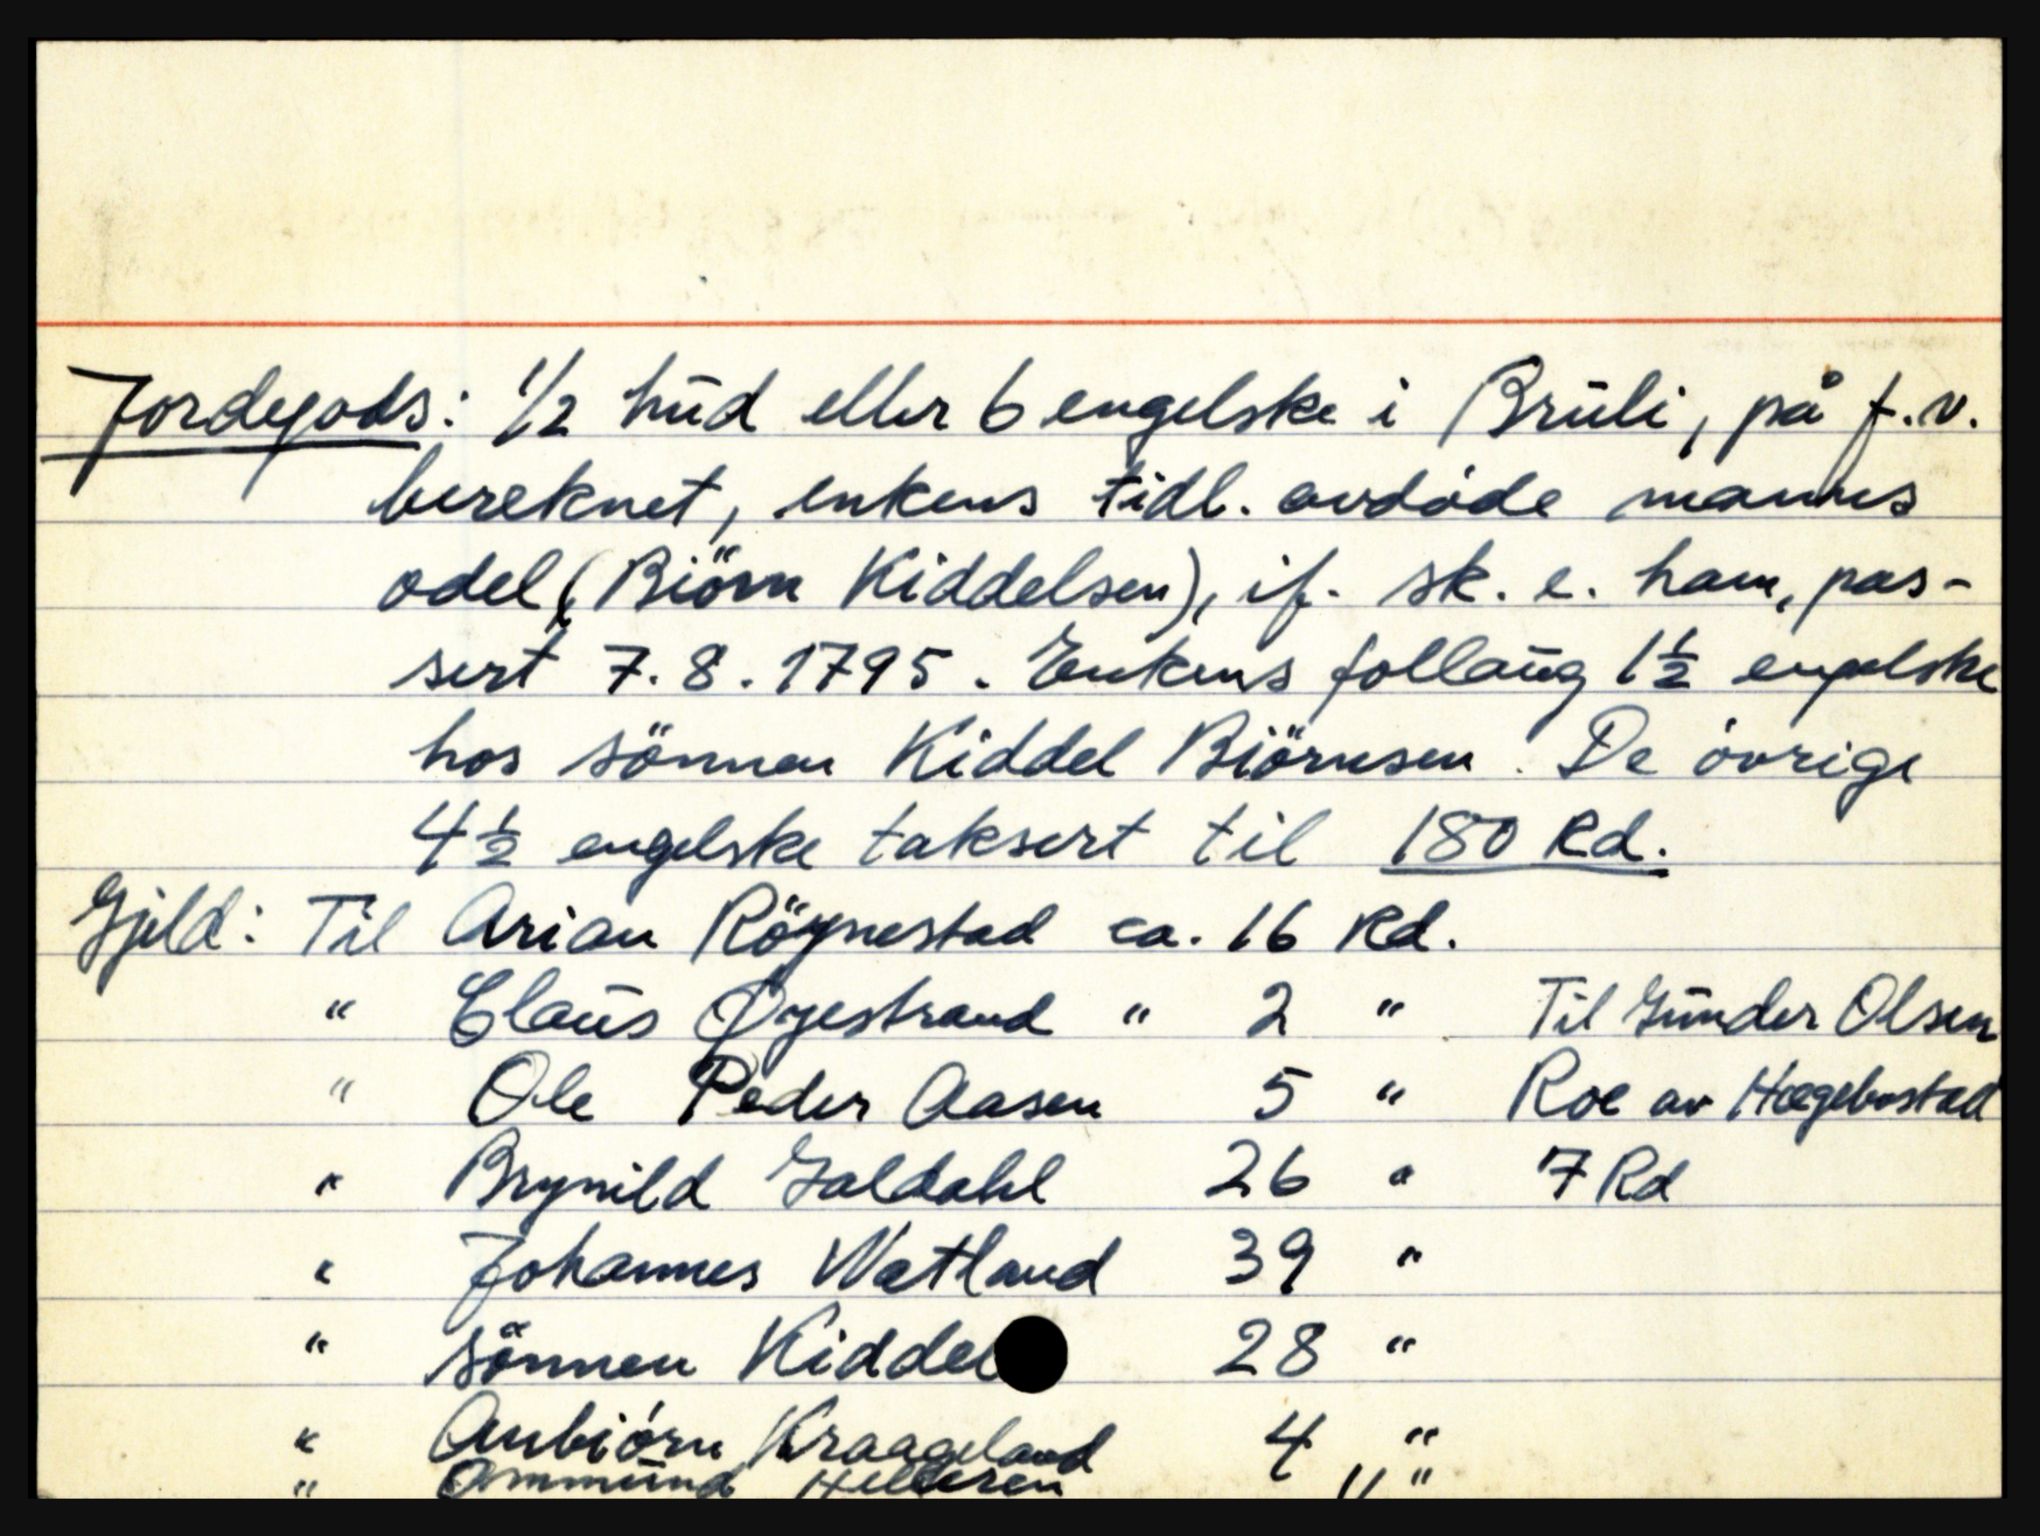 Jordegods: 1/2 hud eller 6 engelske i Bruli, på f.v.
bereknet, enkens tidl. avdøde manns
odel (Biörn Kiddelsen), if. sk. e. ham, pas-
sert 7.8.1795. Enkens follaug 1 1/2 engelske
hos sönnen Kiddel Biörnsen. De övrige
4 1/2 engelske taksert til 180 Rd.
Gjeld: Til Arian Röynestad ca. 16 Rd.
" Claus Øyestrand " 2 " Til Gunder Olsen
" Ole Peder Aasen 5 " Roe av Hægebostad
" Brynild Galdahl 26 " 7 Rd
" Johannes Watland 39 "
" sönnen Kiddel 28 "
" Anbiørn Kraageland 4 "
" Ommund Helleren 11 "